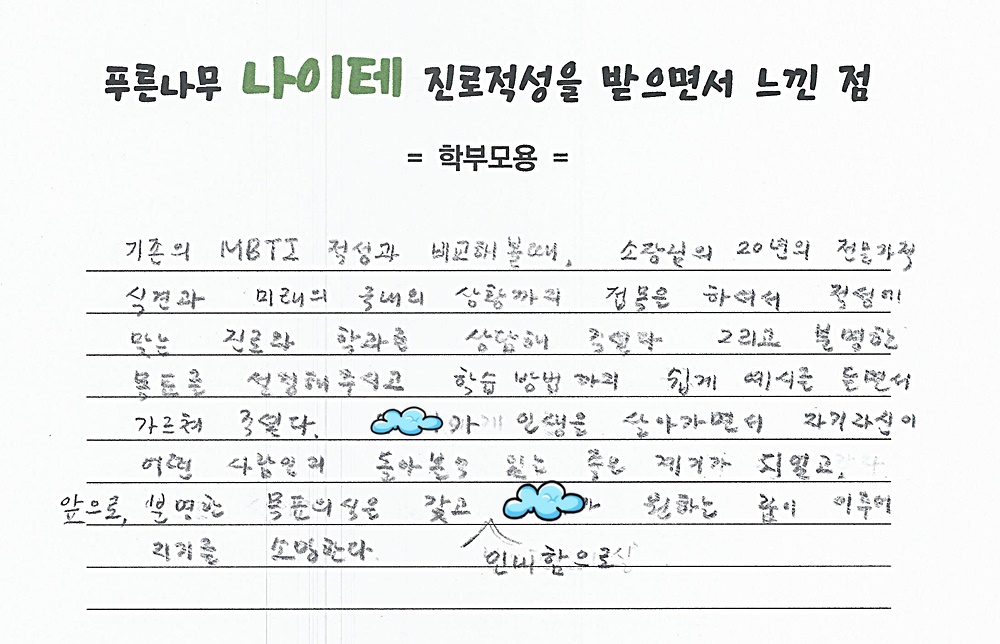 푸른나무 나이테 진로적성을 받으면서 느낀 점
= 학부모용 =
기존의 MBTI 적성과 비교해 볼때, 소장님의 20년의 전문가적
식견과 미래의 국내의 상황까지 접목은 하여서 적성에
맞는 진로와 학과를 상담해 주셨다 그리고 분명한
목표를 설정해 주시고 학습 방법 까지 쉽게 예시를 들면서
가르쳐 주셨다. 인생을 살아가면서 자기자신이
어떤 사람인지 돌아볼수 있는 좋은 계기가 되었고,
앞으로, 분명한 목표의식은 갖고 원하는 꿈이 이루어
지기를 소망한다
인내함으로